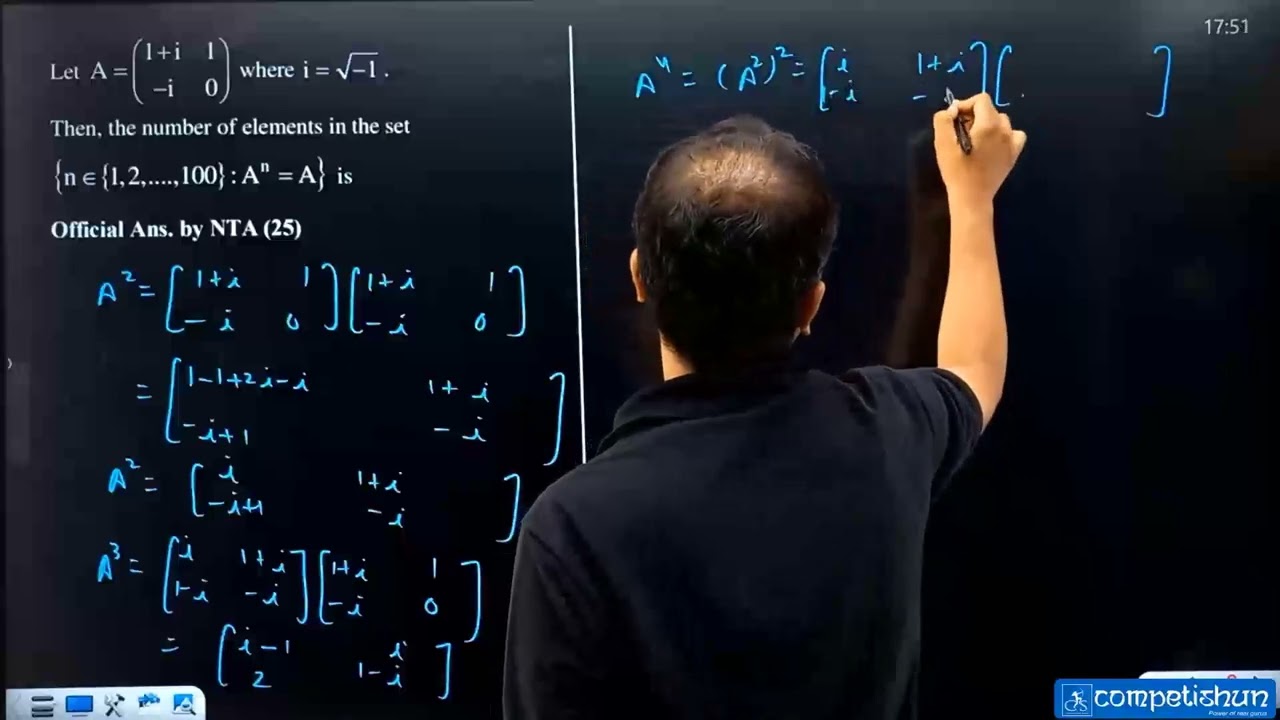 17:51
Let A = (1+i 1
-i 0) where i = √-1 .
Then, the number of elements in the set
{n ∈ {1,2,....,100} : Aⁿ = A} is
Official Ans. by NTA (25)
A² = [1+i 1
-i 0] [1+i 1
-i 0]
= [1-1+2i-i 1+i
-i+1 -i]
A² = [i 1+i
-i+1 -i]
A³ = [i 1+i
1-i -i] [1+i 1
-i 0]
= [i-1 i
2 1-i]
A⁴ = (A²)² = [i 1+i
1-i -] [ ]
competishun